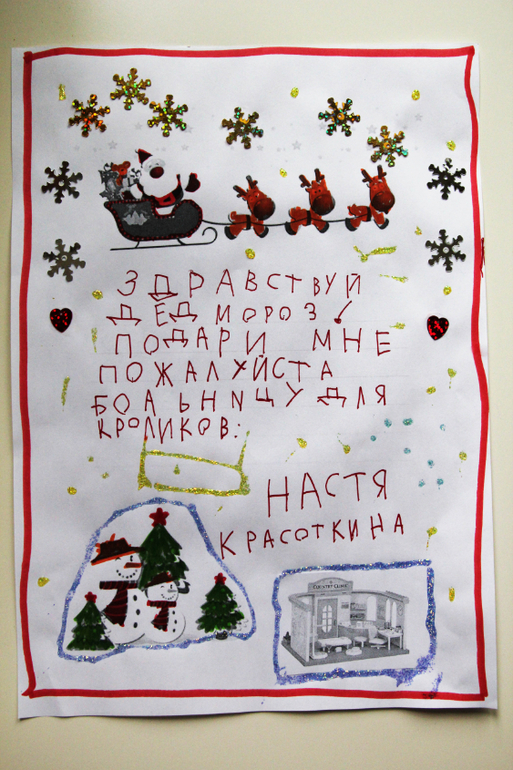 ЗДРАВСТВУЙ
ДЕД МОРОЗ!
ПОДАРИ МНЕ
ПОЖАЛУЙСТА
БОАЬНИЦУ ДЛЯ
КРОЛИКОВ:
НАСТЯ
КРАСОТКИНА
COUNTRY CLINIC